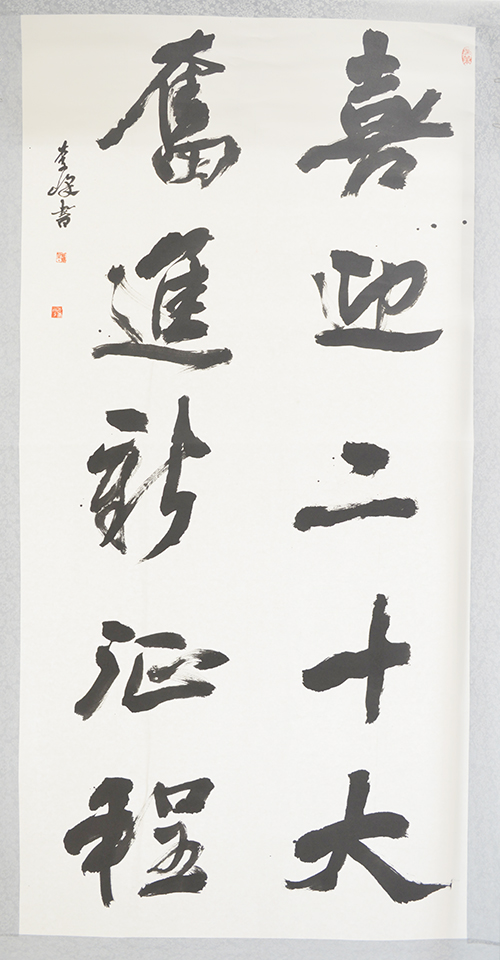 喜迎二十大
奮進新征程
李峰書